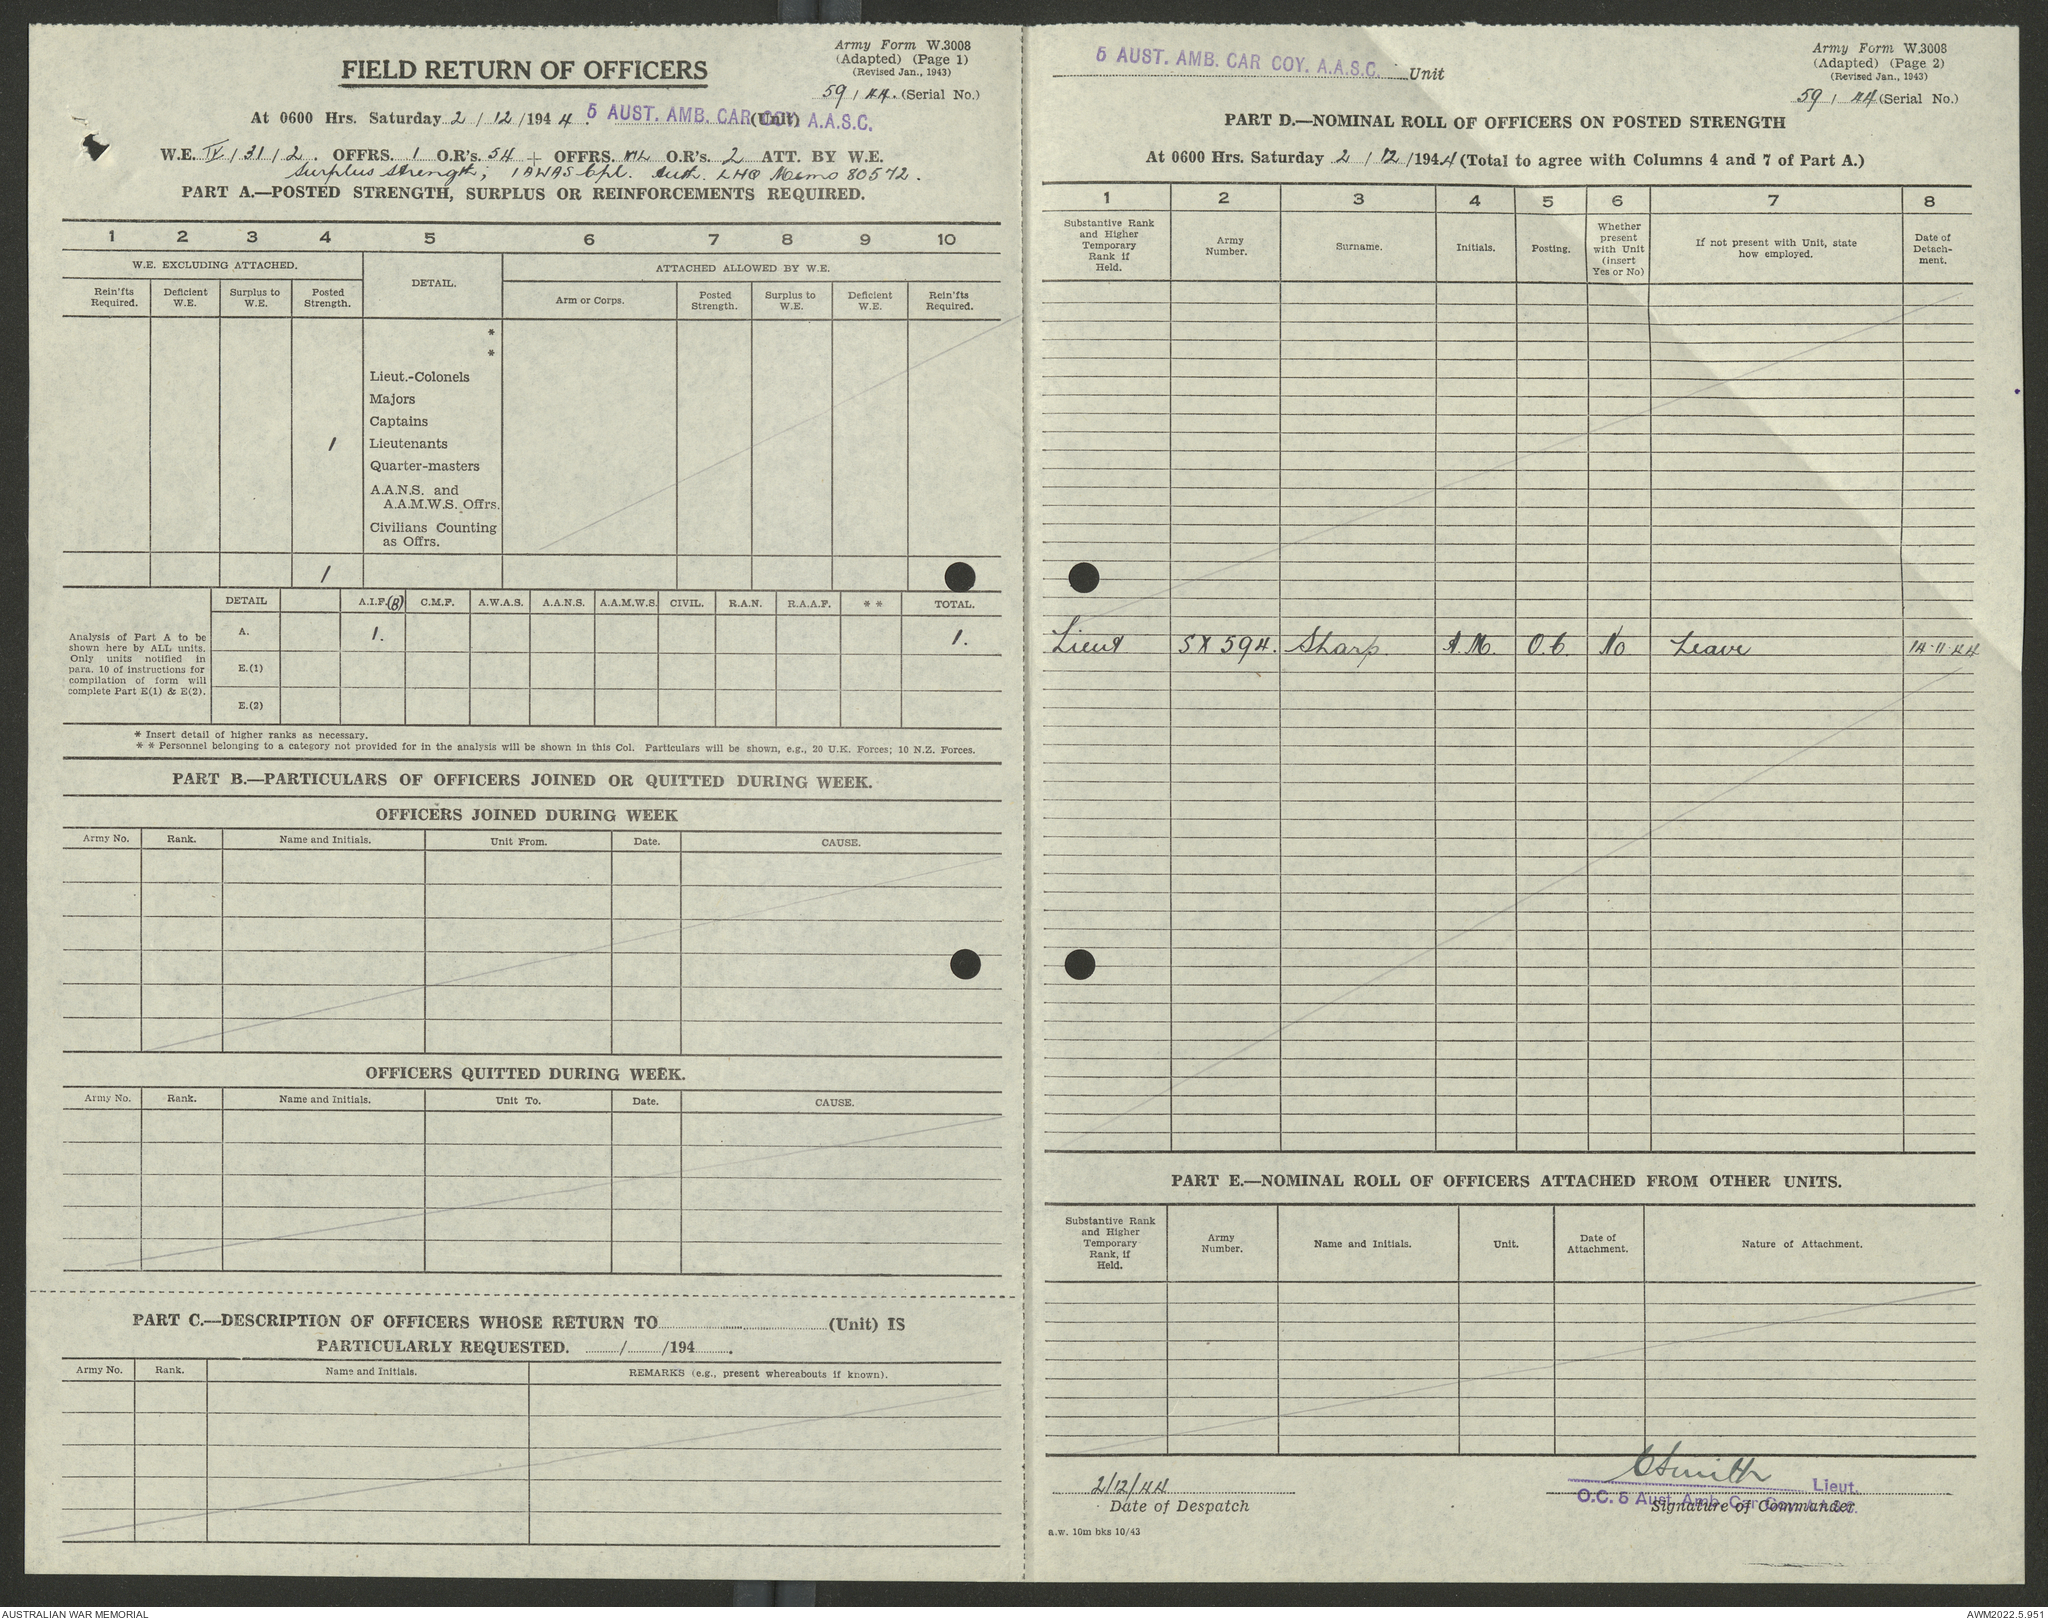 Army Form W.3008
(Adapted) (Page 1)
(Revised Jan., 1943)
FIELD RETURN OF OFFICERS
59 / 44. (Serial No.)
At 0600 Hrs. Saturday 2 / 12 / 194 4. 5 AUST. AMB. CAR COY. A.A.S.C. (Unit)
W.E. IV / 31 / 2. OFFRS. 1 O.R's. 54 + OFFRS. NIL O.R's. 2 ATT. BY W.E.
Surplus strength; 1 AWAS Cpl. Auth. LHQ Memo 80572.
PART A.—POSTED STRENGTH, SURPLUS OR REINFORCEMENTS REQUIRED.
1 2 3 4 5 6 7 8 9 10
W.E. EXCLUDING ATTACHED. DETAIL. ATTACHED ALLOWED BY W.E.
Rein'fts Required. Deficient W.E. Surplus to W.E. Posted Strength. Arm or Corps. Posted Strength. Surplus to W.E. Deficient W.E. Rein'fts Required.
*
*
Lieut.-Colonels
Majors
Captains
1 Lieutenants
Quarter-masters
A.A.N.S. and
A.A.M.W.S. Offrs.
Civilians Counting
as Offrs.
1
DETAIL A.I.F.(B) C.M.F. A.W.A.S. A.A.N.S. A.A.M.W.S. CIVIL. R.A.N. R.A.A.F. * * TOTAL.
Analysis of Part A to be
shown here by ALL units.
Only units notified in
para. 10 of instructions for
compilation of form will
complete Part E(1) & E(2).
A. 1. 1.
E.(1)
E.(2)
* Insert detail of higher ranks as necessary.
* * Personnel belonging to a category not provided for in the analysis will be shown in this Col. Particulars will be shown, e.g., 20 U.K. Forces; 10 N.Z. Forces.
PART B.—PARTICULARS OF OFFICERS JOINED OR QUITTED DURING WEEK.
OFFICERS JOINED DURING WEEK
Army No. Rank. Name and Initials. Unit From. Date. CAUSE.
OFFICERS QUITTED DURING WEEK.
Army No. Rank. Name and Initials. Unit To. Date. CAUSE.
PART C.—DESCRIPTION OF OFFICERS WHOSE RETURN TO (Unit) IS
PARTICULARLY REQUESTED. / /194 .
Army No. Rank. Name and Initials. REMARKS (e.g., present whereabouts if known).
5 AUST. AMB. CAR COY. A.A.S.C. Unit
Army Form W.3008
(Adapted) (Page 2)
(Revised Jan., 1943)
59 / 44 (Serial No.)
PART D.—NOMINAL ROLL OF OFFICERS ON POSTED STRENGTH
At 0600 Hrs. Saturday 2 / 12 / 1944 (Total to agree with Columns 4 and 7 of Part A.)
1 2 3 4 5 6 7 8
Substantive Rank and Higher Temporary Rank if Held. Army Number. Surname. Initials. Posting. Whether present with Unit (insert Yes or No) If not present with Unit, state how employed. Date of Detach- ment.
Lieut SX 594. Sharp. A.M. O.C. No Leave 14-11-44
PART E.—NOMINAL ROLL OF OFFICERS ATTACHED FROM OTHER UNITS.
Substantive Rank and Higher Temporary Rank, if Held. Army Number. Name and Initials. Unit. Date of Attachment. Nature of Attachment.
2/12/44
Date of Despatch
CSmith Lieut.
O.C. 5 Aust. Amb. Car Coy. A.A.S.C.
Signature of Commander.
a.w. 10m bks 10/43
AUSTRALIAN WAR MEMORIAL
AWM2022.5.951